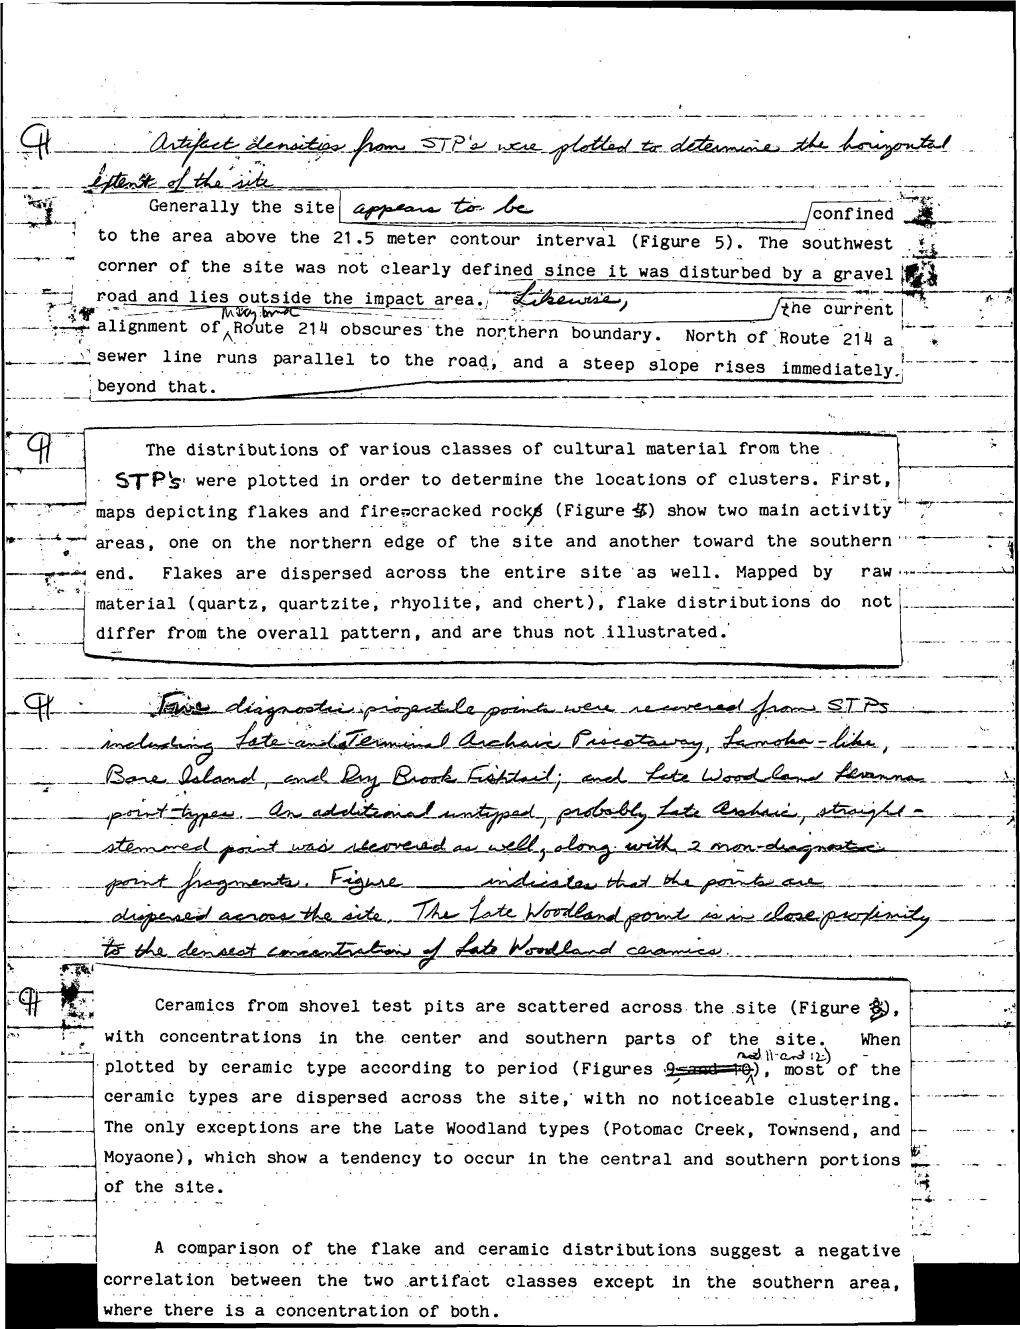 ¶ Artifact densities from STP's were plotted to determine the horizontal
extent of the site
Generally the site appears to be confined
to the area above the 21.5 meter contour interval (Figure 5). The southwest
corner of the site was not clearly defined since it was disturbed by a gravel
road and lies outside the impact area. Likewise, the current
Maryland
alignment of Route 214 obscures the northern boundary. North of Route 214 a
sewer line runs parallel to the road, and a steep slope rises immediately
beyond that.
¶ The distributions of various classes of cultural material from the
STP's were plotted in order to determine the locations of clusters. First,
maps depicting flakes and fire-cracked rock (Figure ) show two main activity
areas, one on the northern edge of the site and another toward the southern
end. Flakes are dispersed across the entire site as well. Mapped by raw
material (quartz, quartzite, rhyolite, and chert), flake distributions do not
differ from the overall pattern, and are thus not illustrated.
¶ diagnostic projectile points were recovered from STPs
including Late and Terminal Archaic Piscataway, Lamoka-like,
Bare Island, and Dry Brook Fishtail; and Late Woodland Levanna
point types. An additional untyped, probably Late Archaic, straight-
stemmed point was recovered as well, along with 2 non-diagnostic
point fragments. Figure ____ indicates that the points are
dispersed across the site. The Late Woodland point is in close proximity
to the densest concentration of Late Woodland ceramics.
¶ Ceramics from shovel test pits are scattered across the site (Figure ),
with concentrations in the center and southern parts of the site. When
and 11 and 12)
plotted by ceramic type according to period (Figures 9 and 10), most of the
ceramic types are dispersed across the site, with no noticeable clustering.
The only exceptions are the Late Woodland types (Potomac Creek, Townsend, and
Moyaone), which show a tendency to occur in the central and southern portions
of the site.
A comparison of the flake and ceramic distributions suggest a negative
correlation between the two artifact classes except in the southern area,
where there is a concentration of both.